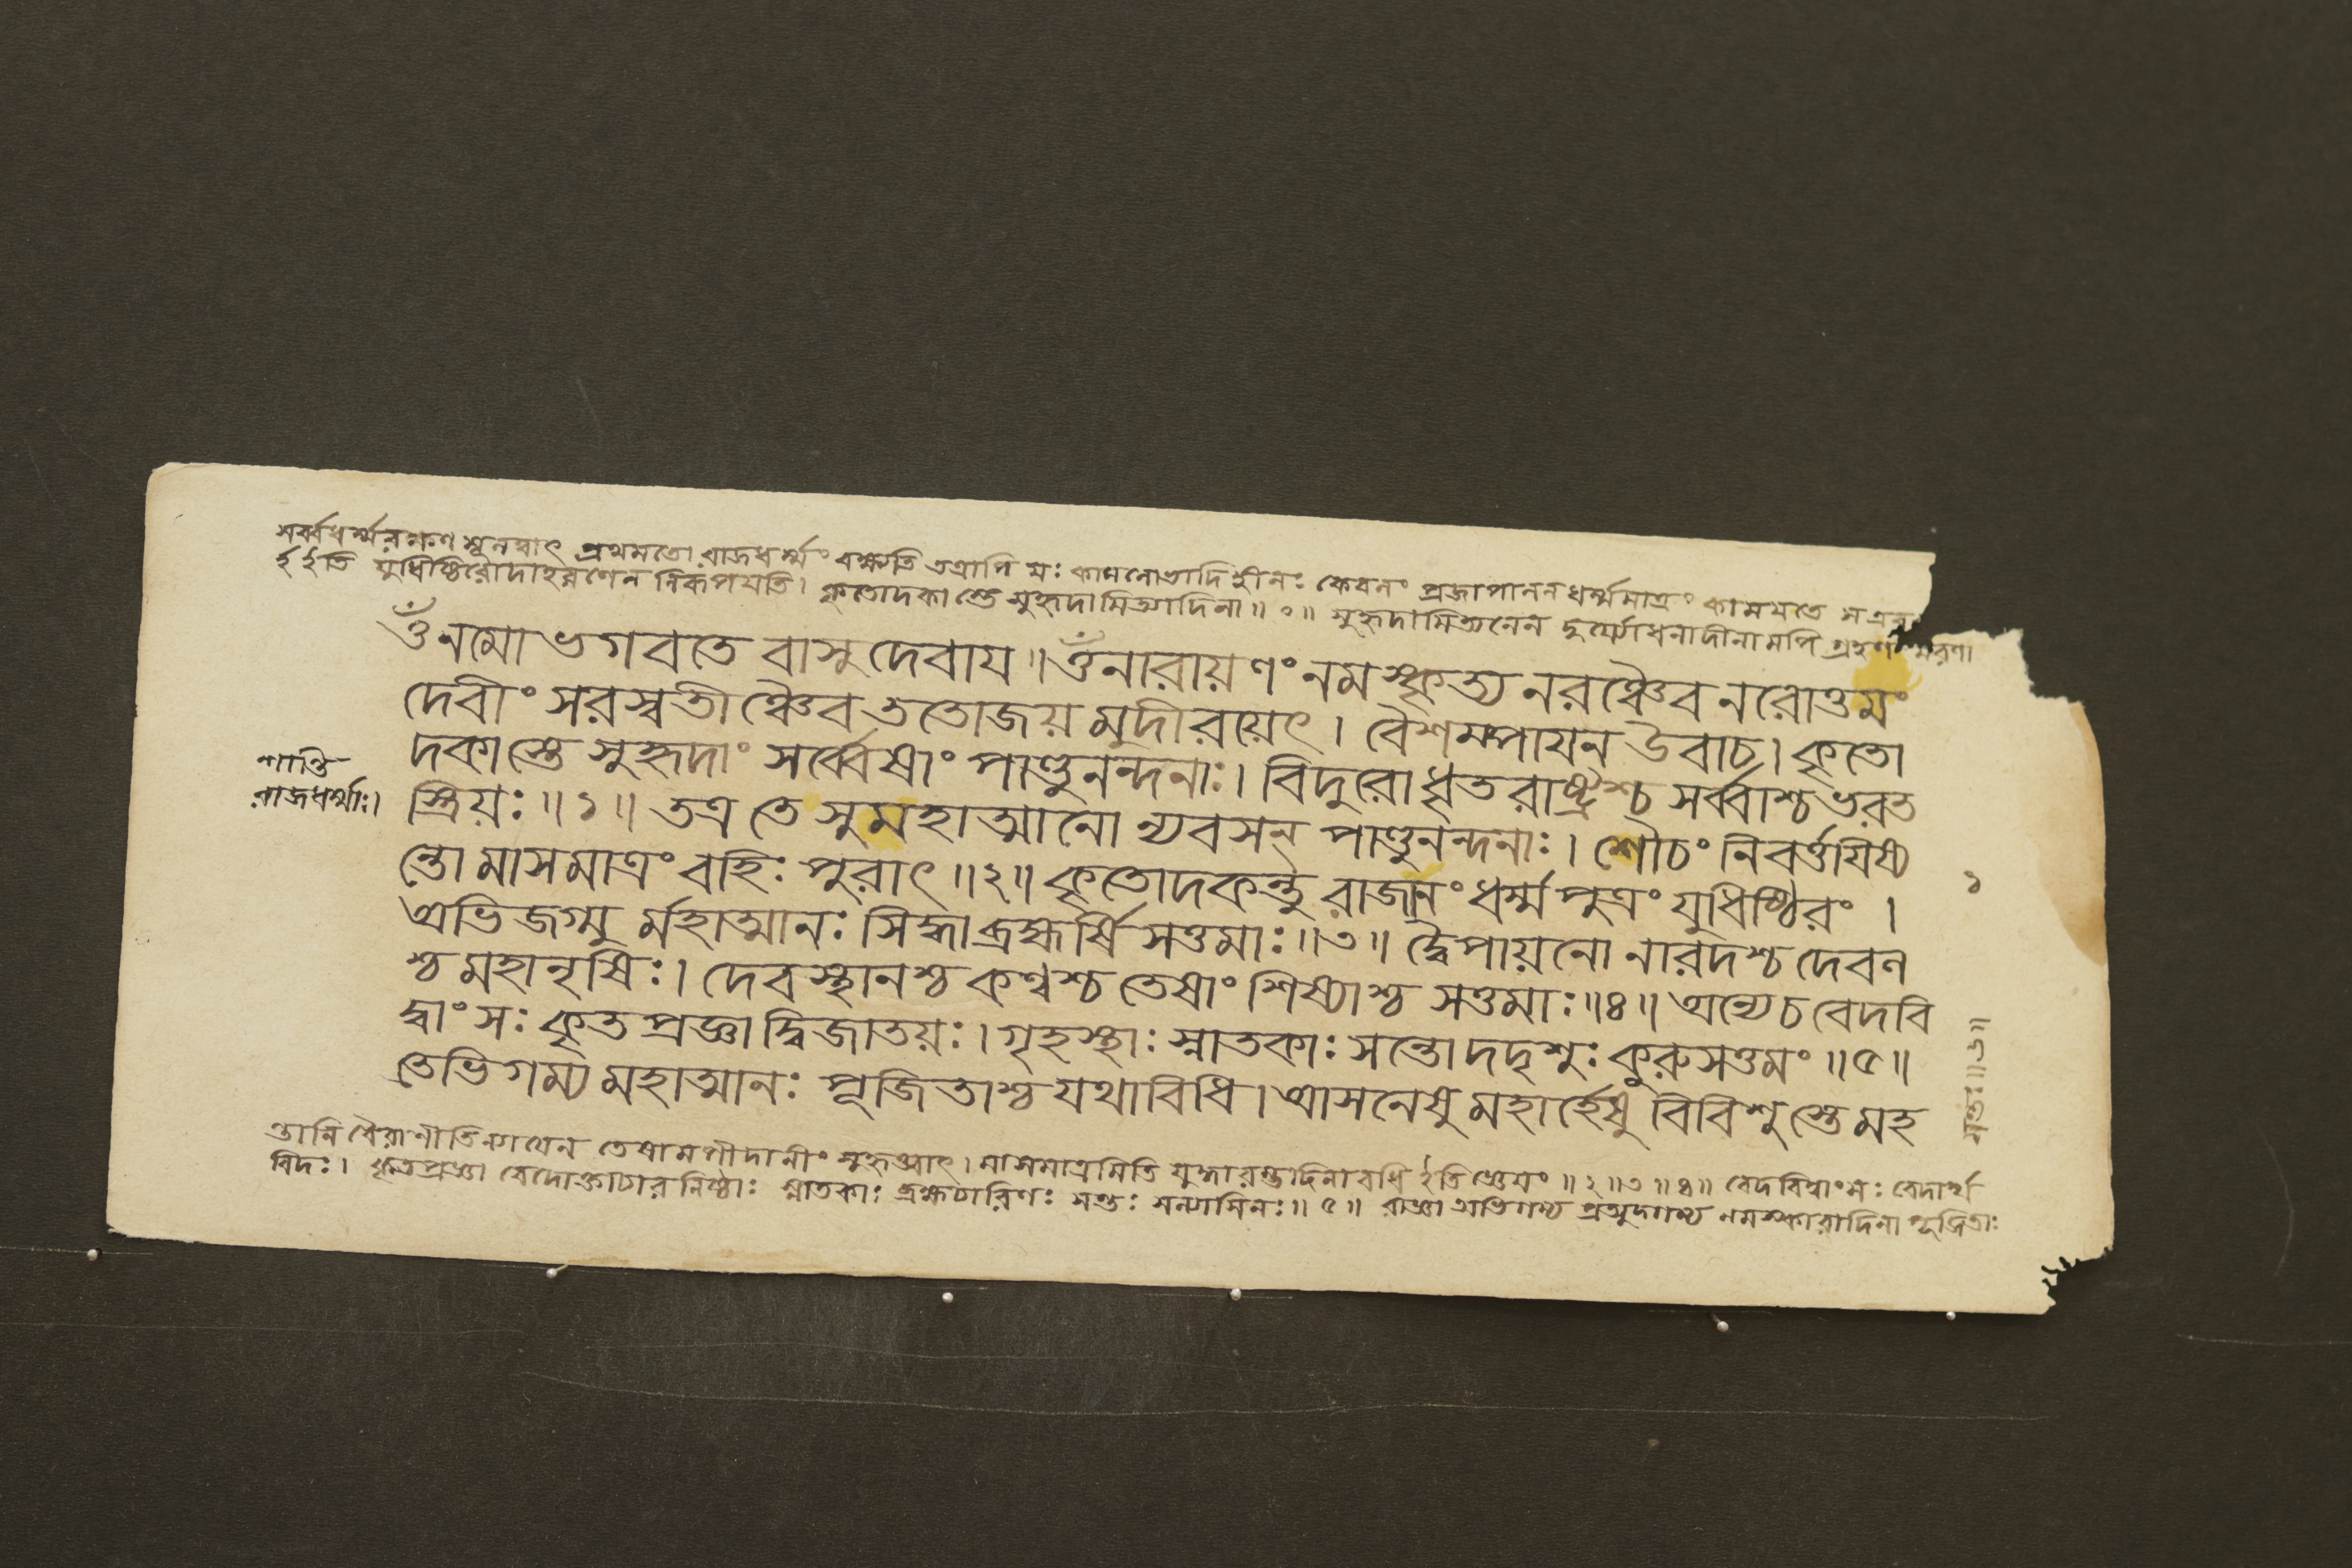 সর্ব্বধর্ম্মরক্ষণ মূলত্বাৎ প্রথমতো রাজধর্ম্মং বক্ষ্যতি তত্রাপি যঃ কামলোভাদি হীনঃ কেবলং প্রজাপালনধর্ম্মমাত্রং কাময়তে স এব
ইতি যুধিষ্ঠিরোদাহরণেন নিরূপয়তি। কৃতোদকাস্তে সুহৃদামিত্যাদিনা॥ ०॥ সুহৃদামিত্যনেন দুর্য্যোধনাদীনামপি গ্রহণং মরণা
ওঁ নমো ভগবতে বাসুদেবায়॥ ওঁ নারায়ণং নমস্কৃত্য নরঞ্চৈব নরোত্তমং
দেবীং সরস্বতীঞ্চৈব ততোজয়মুদীরয়েৎ। বৈশম্পায়ন উবাচ। কৃতো
দকাস্তে সুহৃদাং সর্ব্বেষাং পাণ্ডুনন্দনাঃ। বিদুরোধৃতরাষ্ট্রশ্চ সর্ব্বাশ্চ ভরত
স্ত্রিয়ঃ॥১॥ তত্র তে সুমহাত্মানো ন্যবসন্ পাণ্ডুনন্দনাঃ। শৌচং নিবর্ত্তয়িষ্য
ন্তো মাসমাত্রং বহিঃ পুরাৎ॥২॥ কৃতোদকন্তু রাজানং ধর্ম্মপুত্রং যুধিষ্ঠিরং।
অভিজগ্মু র্মহাত্মানঃ সিদ্ধাব্রহ্মর্ষিসত্তমাঃ॥৩॥ দ্বৈপায়নো নারদশ্চ দেবল
শ্চ মহানৃষিঃ। দেবস্থানশ্চ কণ্বশ্চ তেষাং শিষ্যাশ্চ সত্তমাঃ॥৪॥ অন্যেচ বেদবি
দ্বাংসঃ কৃতপ্রজ্ঞা দ্বিজাতয়ঃ। গৃহস্থাঃ স্নাতকাঃ সন্তো দদৃশুঃ কুরুসত্তমং॥৫॥
তেভিগম্য মহাত্মানঃ পূজিতাশ্চ যথাবিধি। আসনেষু মহার্হেষু বিবিশুস্তে মহ
শান্তি
রাজধর্ম্মাঃ।
১
ন্তানি বৈরাণীতিন্যায়েন তেষামপীদানীং সুহৃত্ত্বাৎ। মাসমাত্রমিতি যুদ্ধারম্ভাদিনাবধি ইতি জ্ঞেয়ং॥২॥৩॥৪॥ বেদবিদ্বাংসঃ বেদার্থ
বিদঃ। কৃতপ্রজ্ঞা বেদোক্তাচারনিষ্ঠাঃ স্নাতকাঃ ব্রহ্মচারিণঃ সন্তঃ সন্ন্যাসিনঃ॥৫॥ রাজ্ঞা অভিগম্য প্রত্যুদ্গম্য নমস্কারাদিনা পূজিতাঃ
সন্তঃ॥৬॥